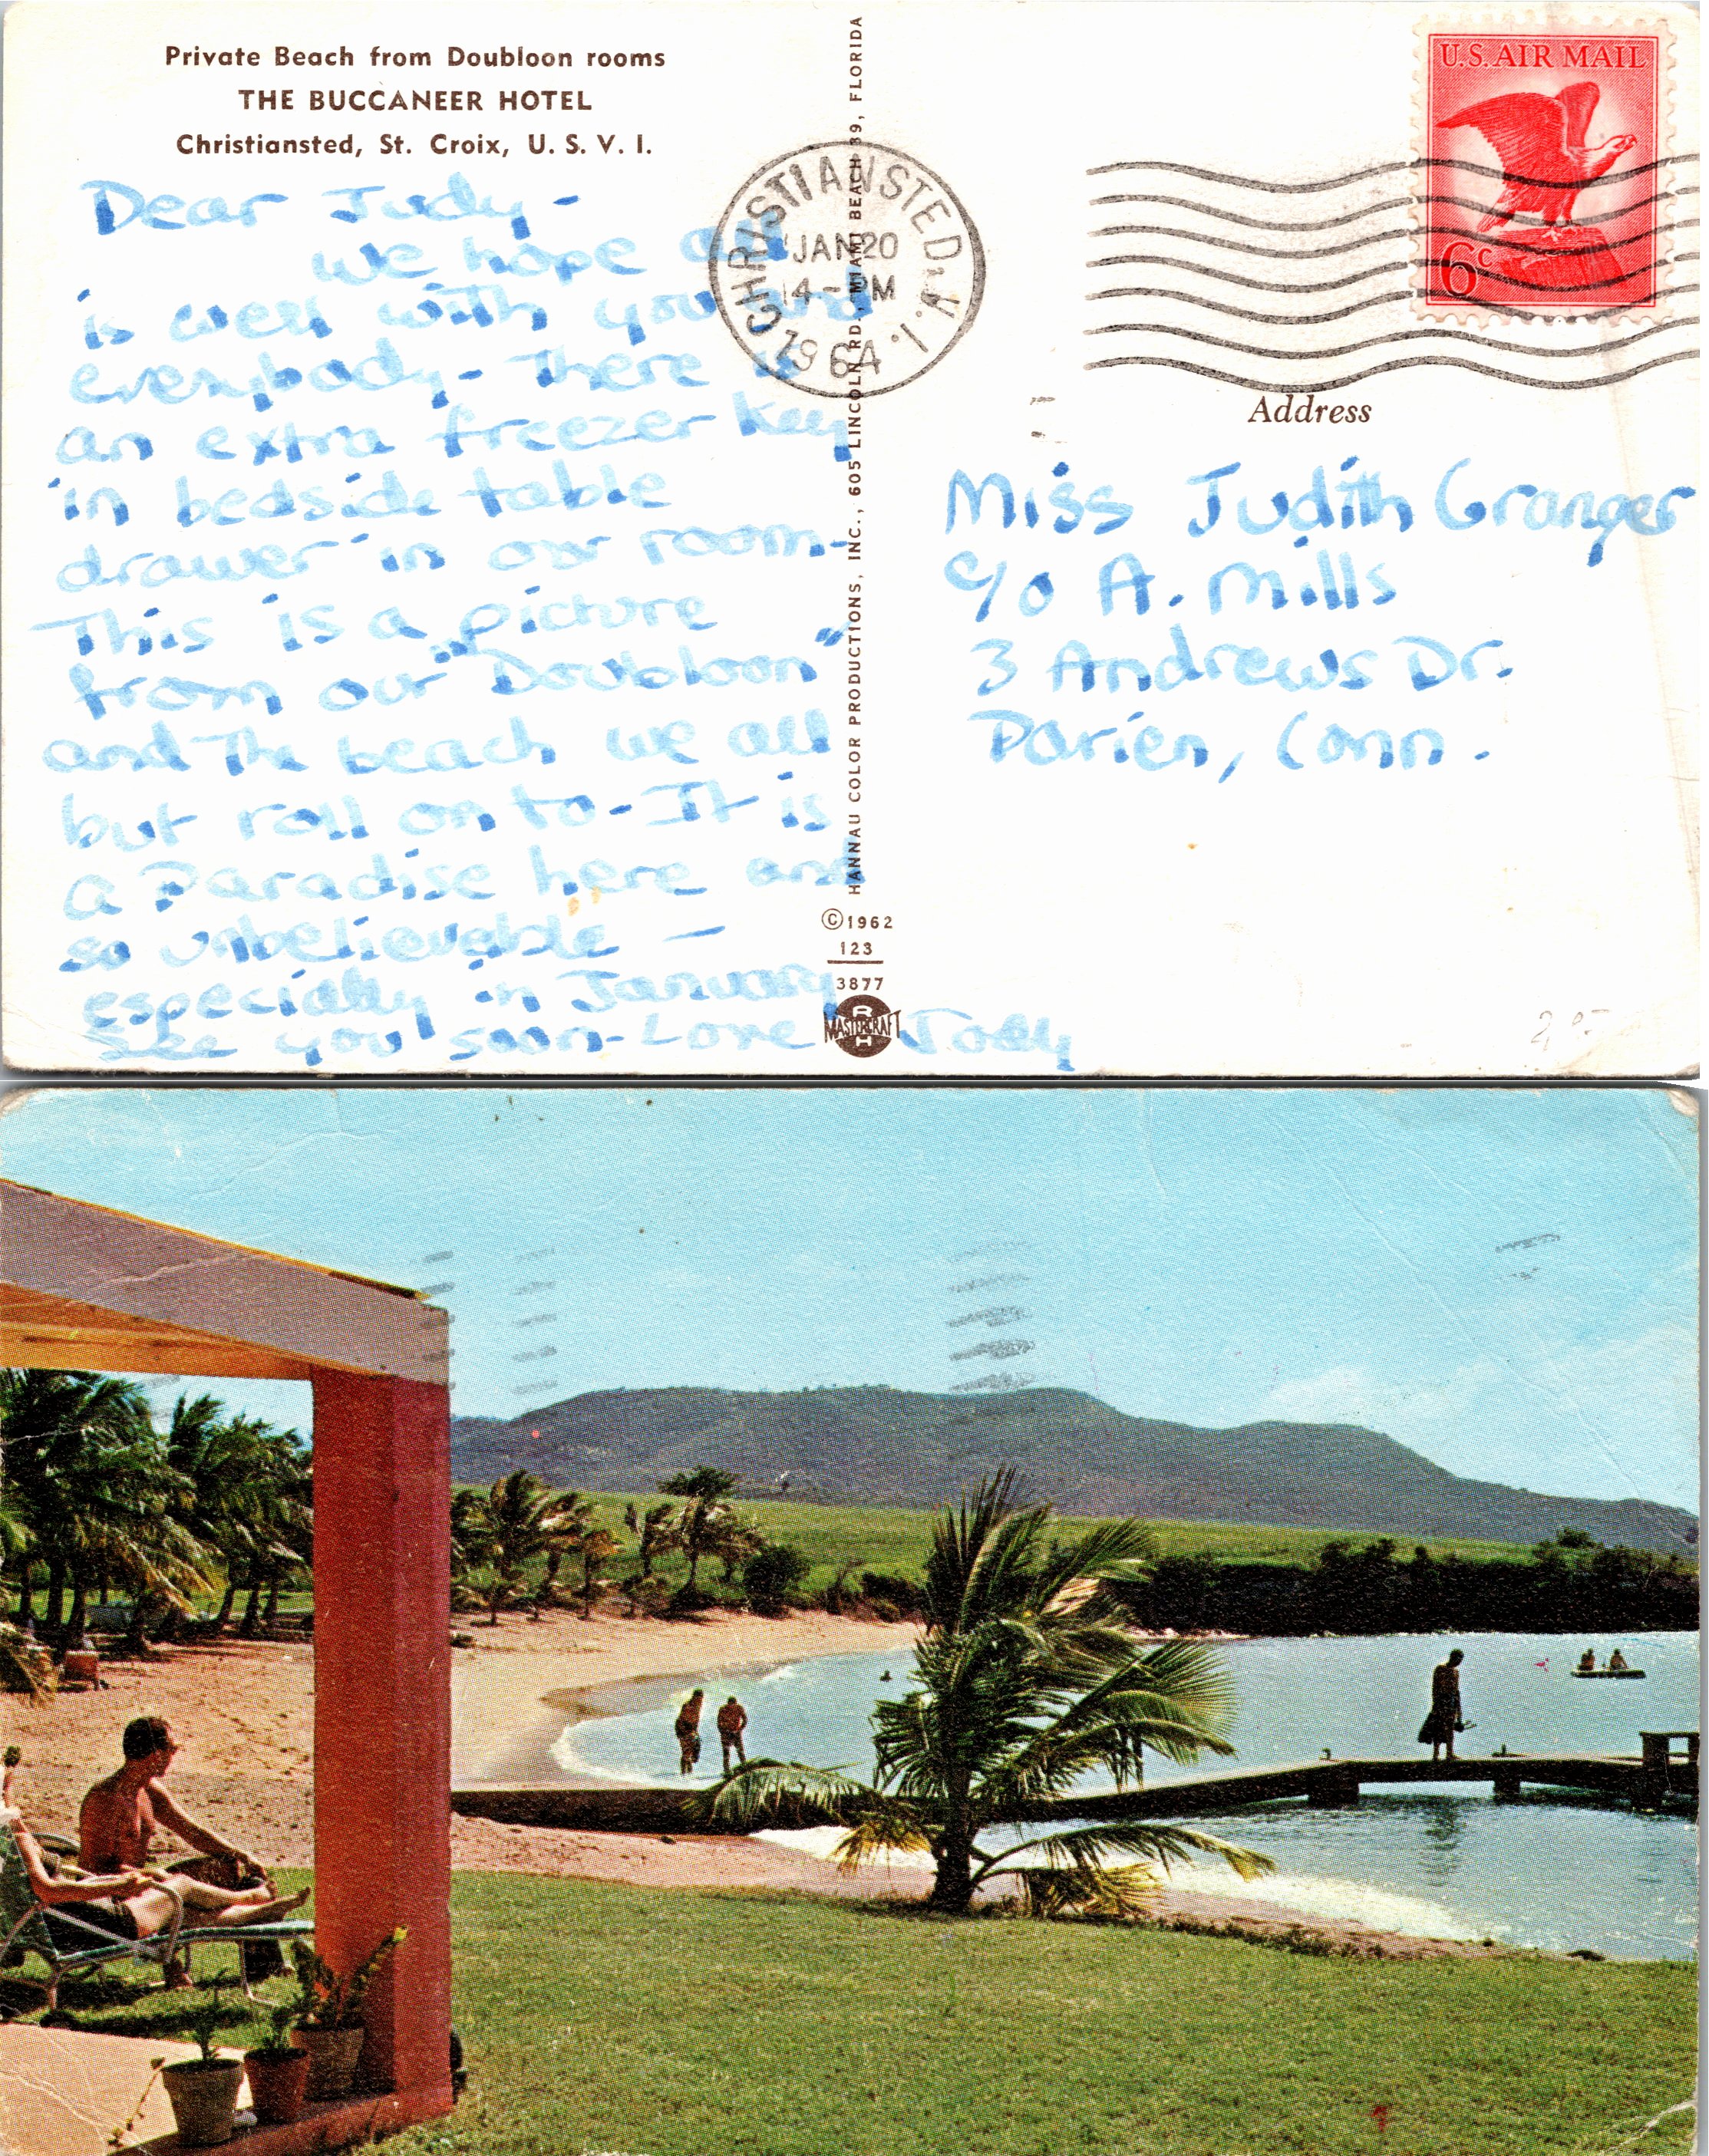 Private Beach from Doubloon rooms
THE BUCCANEER HOTEL
Christiansted, St. Croix, U. S. V. I.
Dear Judy -
we hope all
is well with you and
everybody - There is
an extra freezer key
in bedside table
drawer in our room -
This is a picture
from our "Doubloon"
and the beach we all
but roll on to - It is
a Paradise here and
so unbelievable -
especially in January
see you soon - Love Jody
HANNAU COLOR PRODUCTIONS, INC., 605 LINCOLN RD., MIAMI BEACH 39, FLORIDA
©1962
123
3877
MASTERCRAFT
R
H
CHRISTIANSTED, V. I.
JAN 20
4 - PM
1964
U.S. AIR MAIL
6c
Address
Miss Judith Granger
c/o A. Mills
3 Andrews Dr.
Darien, Conn.